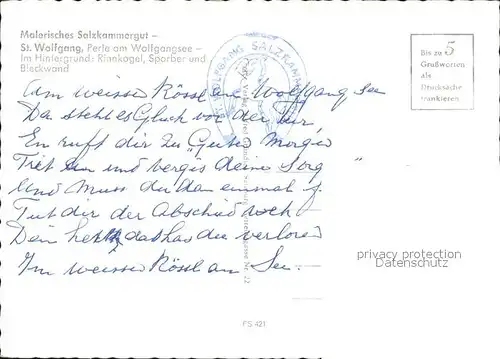 Malerisches Salzkammergut –
St. Wolfgang, Perle am Wolfgangsee –
Im Hintergrund: Rinnkogel, Sparber und
Bleckwand
Bis zu 5
Grußworten
als
Drucksache
frankieren
WOLFGANG SALZKAMM
Am weisse Rössl am Wolfgang See
Da steht es Glück vor der Tür
En ruft dir zu Guten Morgen
Tret ein und vergis deine Sorg
Und Muss du dan einmal f.
Tut dir der Abschied woch
Dein herz das has du verloren
Im weisse Rössl am See.
privacy protection
Datenschutz
PS 421